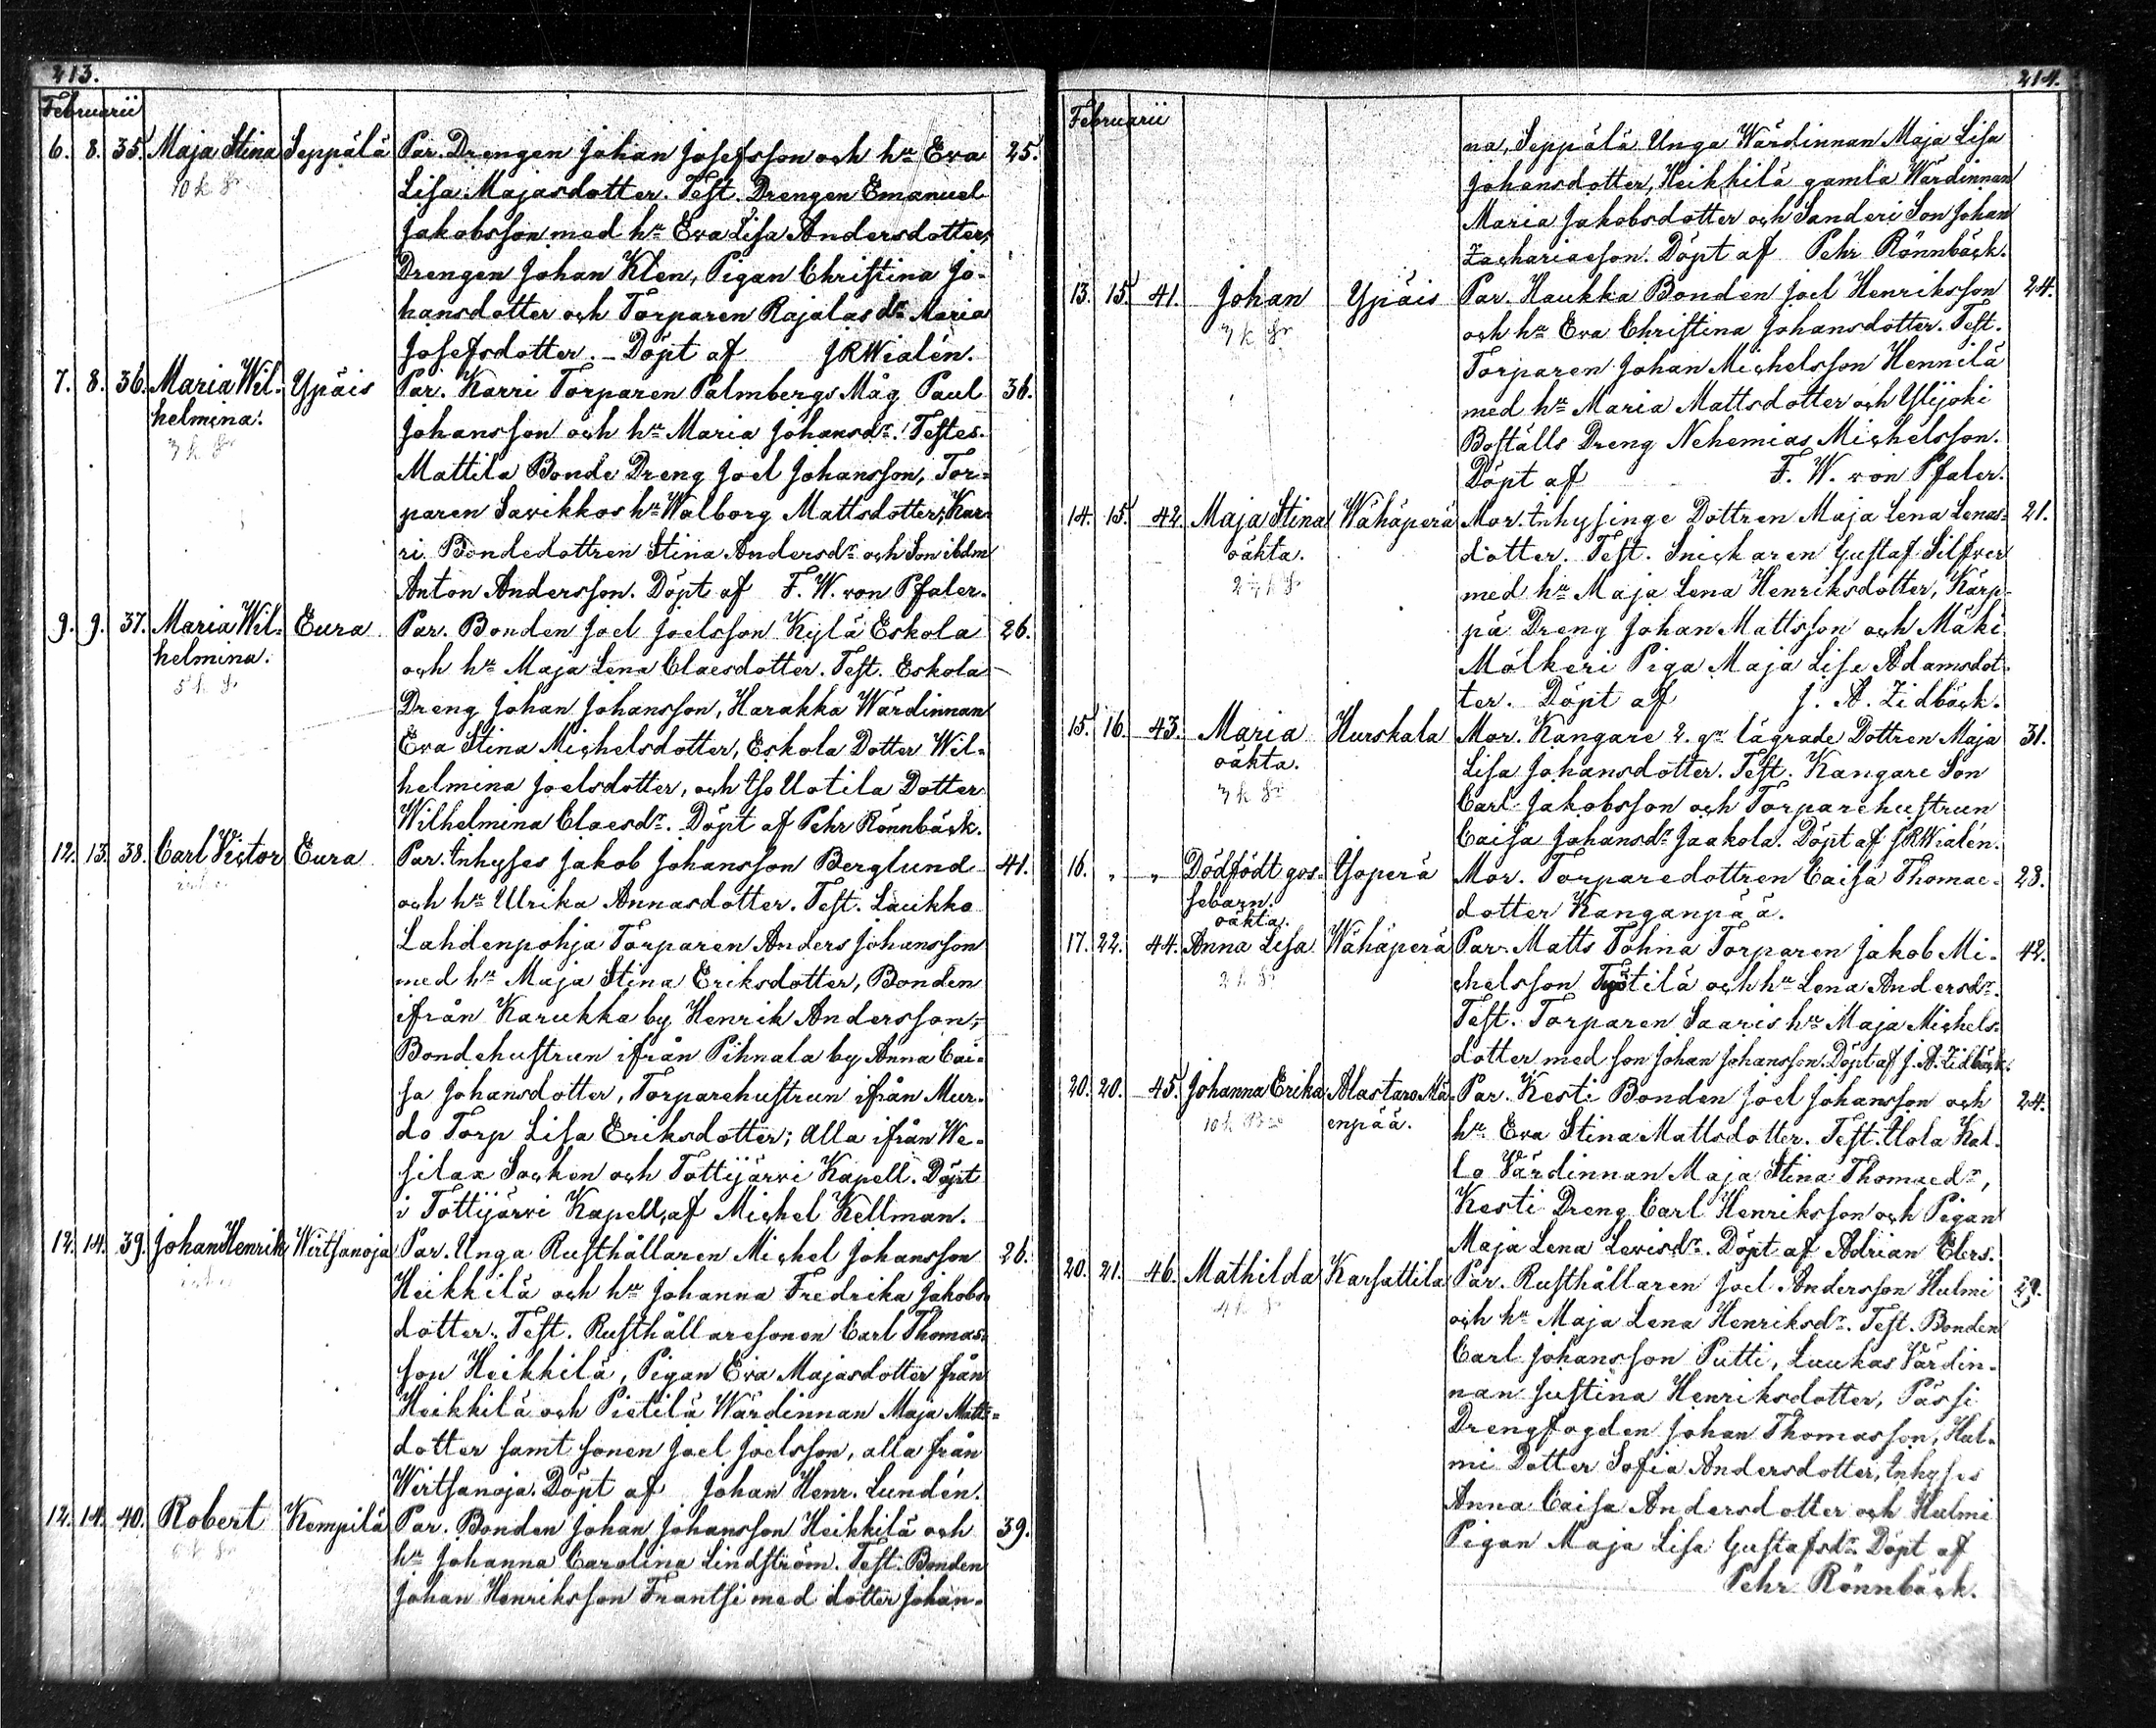 213.
Februarii
6. 8. 35. Maja Stina Seppälä Par. Drengen Johan Josefsson och hu Eva 25.
Lisa Majasdotter. Test. Drengen Emanuel
Jakobsson med hu Eva Lisa Andersdotter,
Drengen Johan Klen, Pigan Christina Jo-
hansdotter och Torparen Rajalas dr Maria
Josefsdotter. – Döpt af J R Wialén.
7. 8. 36. Maria Wil- Ypäis Par. Karri Torparen Palmbergs Måg Paul 36.
helmina. Johansson och hu Maria Johansdr. Testes.
Mattila Bonde Dreng Joel Johansson, Tor-
paren Savikkos hu Walborg Mattsdotter, Kar-
ri Bondedottren Stina Andersdr och Son ibdm
Anton Andersson. Döpt af F. W. von Pfaler.
9. 9. 37. Maria Wil- Eura Par. Bonden Joel Joelsson Kylä Eskola 26.
helmina. och hu Maja Lena Claesdotter. Test. Eskola
Dreng Johan Johansson, Harakka Wärdinnan
Eva Stina Michelsdotter, Eskola Dotter Wil-
helmina Joelsdotter, och Iso Uotila Dotter
Wilhelmina Claesdr. Döpt af Pehr Rönnbäck.
12. 13. 38. Carl Victor Eura Par. Inhyses Jakob Johansson Berglund 41.
och hu Ulrika Annasdotter. Test. Laukko
Lahdenpohja Torparen Anders Johansson
med hu Maja Stina Eriksdotter, Bonden
ifrån Karukka by Henrik Andersson,
Bondehustrun ifrån Pihnala by Anna Cai-
sa Johansdotter, Torparehustrun ifrån Mur-
do Torp Lisa Eriksdotter; Alla ifrån We-
silax Socken och Tottijärvi Kapell. Döpt
i Tottijärvi Kapell, af Michel Kellman.
12. 14. 39. Johan Henrik Wirtsanoja Par. Unga Rusthållaren Michel Johansson 26.
Heikkilä och hu Johanna Fredrika Jakobs-
dotter. Test. Rusthållaresonen Carl Thomas-
son Heikkilä, Pigan Eva Majasdotter från
Heikkilä och Pietilä Wärdinnan Maja Matts-
dotter samt sonen Joel Joelsson, alla från
Wirtsanoja. Döpt af Johan Henr. Lundén.
12. 14. 40. Robert Kempilä Par. Bonden Johan Johansson Heikkilä och 39.
hu Johanna Carolina Lindström. Test. Bonden
Johan Henriksson Frantsi med dotter Johan-
214.
Februarii
na, Seppälä Unga Wärdinnan Maja Lisa
Johansdotter, Heikkilä gamla Wärdinnan
Maria Jakobsdotter och Sanderi Son Johan
Zachariasson. Döpt af Pehr Rönnbäck.
13. 15. 41. Johan Ypäis Par. Haukka Bonden Joel Henriksson 24.
3 k Sr och hu Eva Christina Johansdotter. Test.
Torparen Johan Michelsson Hennilä
med hu Maria Mattsdotter och Ylijoki
Boställs Dreng Nehemias Michelsson.
Döpt af F. W. von Pfaler.
14. 15. 42. Maja Stina Wähäperä Mor. Inhysinge Dottren Maja Lena Lenas- 21.
oäkta. dotter. Test. Snickaren Gustaf Silfver
med hu Maja Lena Henriksdotter, Kärp-
pä Dreng Johan Mattsson och Mäki
Mölkeri Piga Maja Lisa Adamsdot-
ter. Döpt af J. A. Zidbäck.
15. 16. 43. Maria Hurskala Mor. Kangare 2. gr lägrade Dottren Maja 31.
oäkta. Lisa Johansdotter. Test. Kangare Son
3 k Sr Carl Jakobsson och Torparehustrun
Caisa Johansdr Jaakola. Döpt af J R Wialén.
16. „ „ Dödfödt gos- Isoperä Mor. Torparedottren Caisa Thomae- 23.
sebarn. dotter Kanganpää.
oäkta.
17. 22. 44. Anna Lisa Wähäperä Par. Matts Tohna Torparen Jakob Mi- 42.
chelsson Työtilä och hu Lena Andersdr.
Test. Torparen Saaris hu Maja Michels-
dotter med son Johan Johansson. Döpt af J. A. Zidbäck.
20. 20. 45. Johanna Erika Alastaro Mä- Par. Kesti Bonden Joel Johansson och 24.
enpää. hu Eva Stina Mattsdotter. Test. Ilola Kal-
lo Värdinnan Maja Stina Thomaedr,
Kesti Dreng Carl Henriksson och Pigan
Maja Lena Levisdr. Döpt af Adrian Elers.
20. 21. 46. Mathilda Karsattila Par. Rusthållaren Joel Andersson Hulmi 29.
och hu Maja Lena Henriksdr. Test. Bonden
Carl Johansson Putti, Luukas Värdin-
nan Justina Henriksdotter, Pässi
Drengfogden Johan Thomasson, Hul-
mi Dotter Sofia Andersdotter, Inhyses
Anna Caisa Andersdotter och Hulmi
Pigan Maja Lisa Gustafsdr. Döpt af
Pehr Rönnbäck.